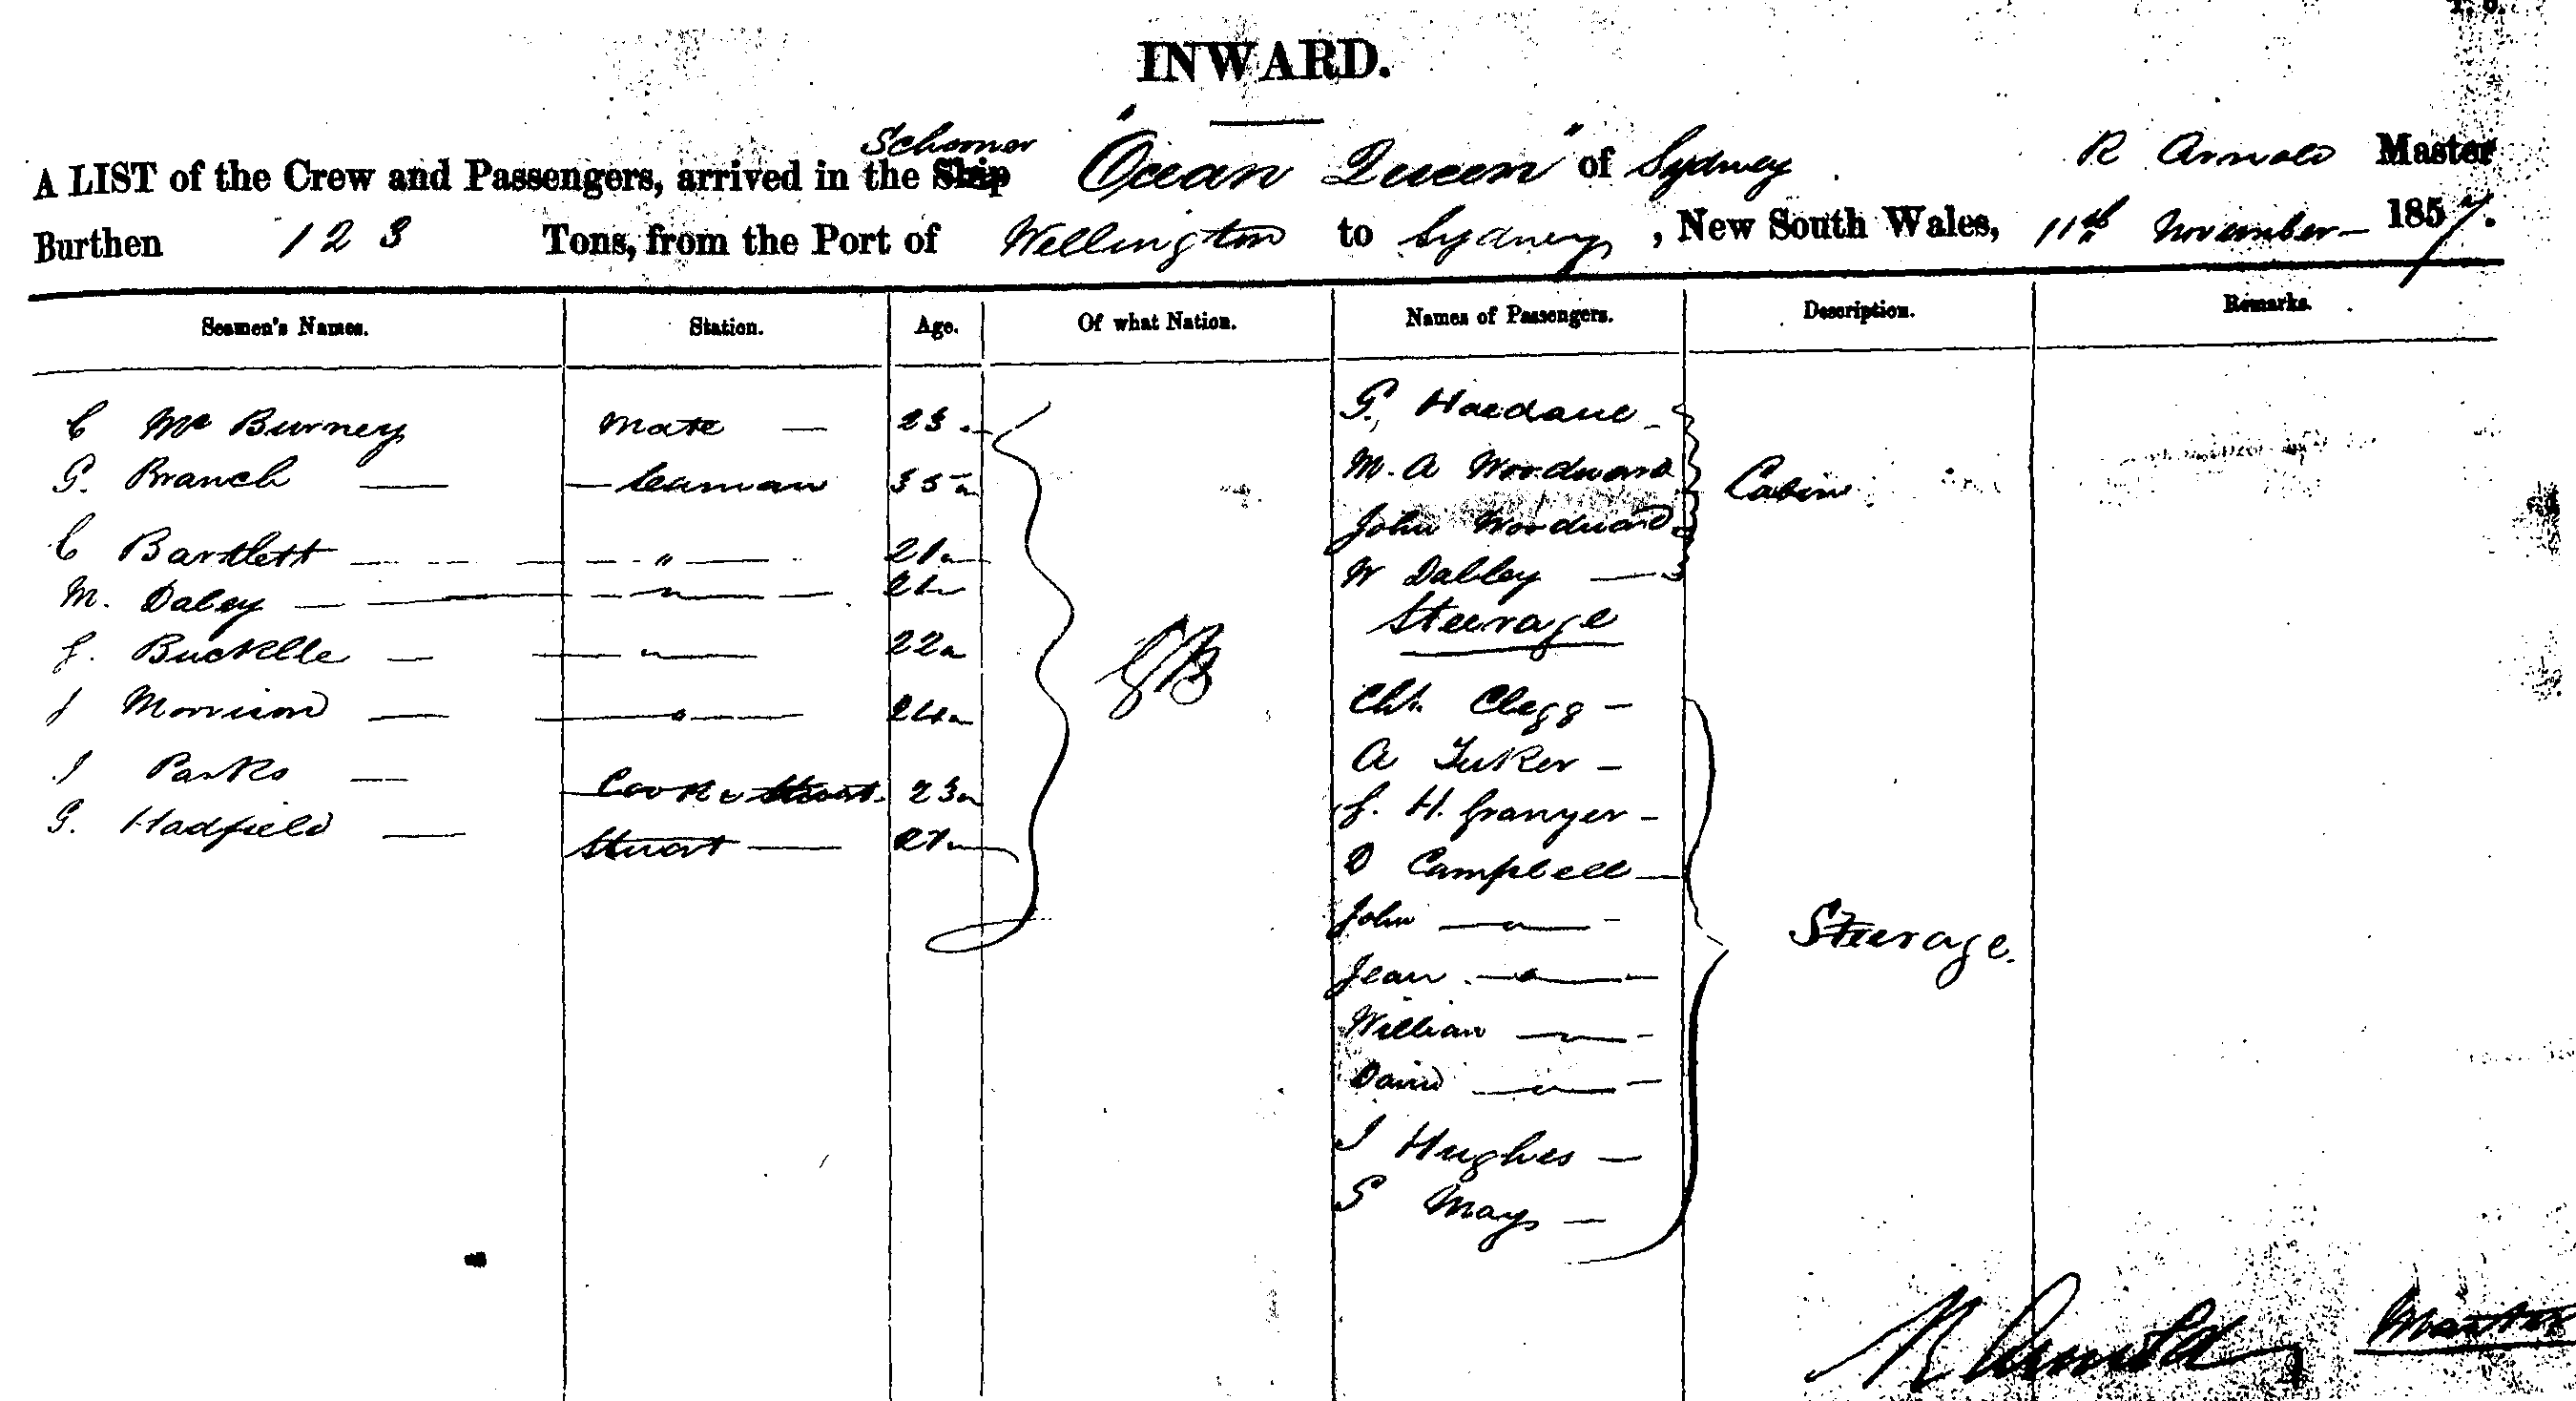 INWARD.
Schooner
A LIST of the Crew and Passengers, arrived in the Ship "Ocean Queen" of Sydney R Arnold Master
Burthen 123 Tons, from the Port of Wellington to Sydney, New South Wales, 11th November 1857.
Seamen's Names. Station. Age. Of what Nation. Names of Passengers. Description. Remarks.
C Mc Burney Mate 23
G. Branch Seaman 35
C Bartlett " 21
M. Daley " 21
J. Buckelle " 22
J Morrison " 24
J Parks Cook & Stuart 23
G. Hadfield Stuart 21
GB
G. Haedane
M. A Woodward
John Woodward
W Dalley
Cabin
Steerage
Cht. Clegg
A Tuker
J. H. Granyer
D Campbell
John "
Jean "
William "
David "
J Hughes
S Mays
Steerage.
R Arnold Master